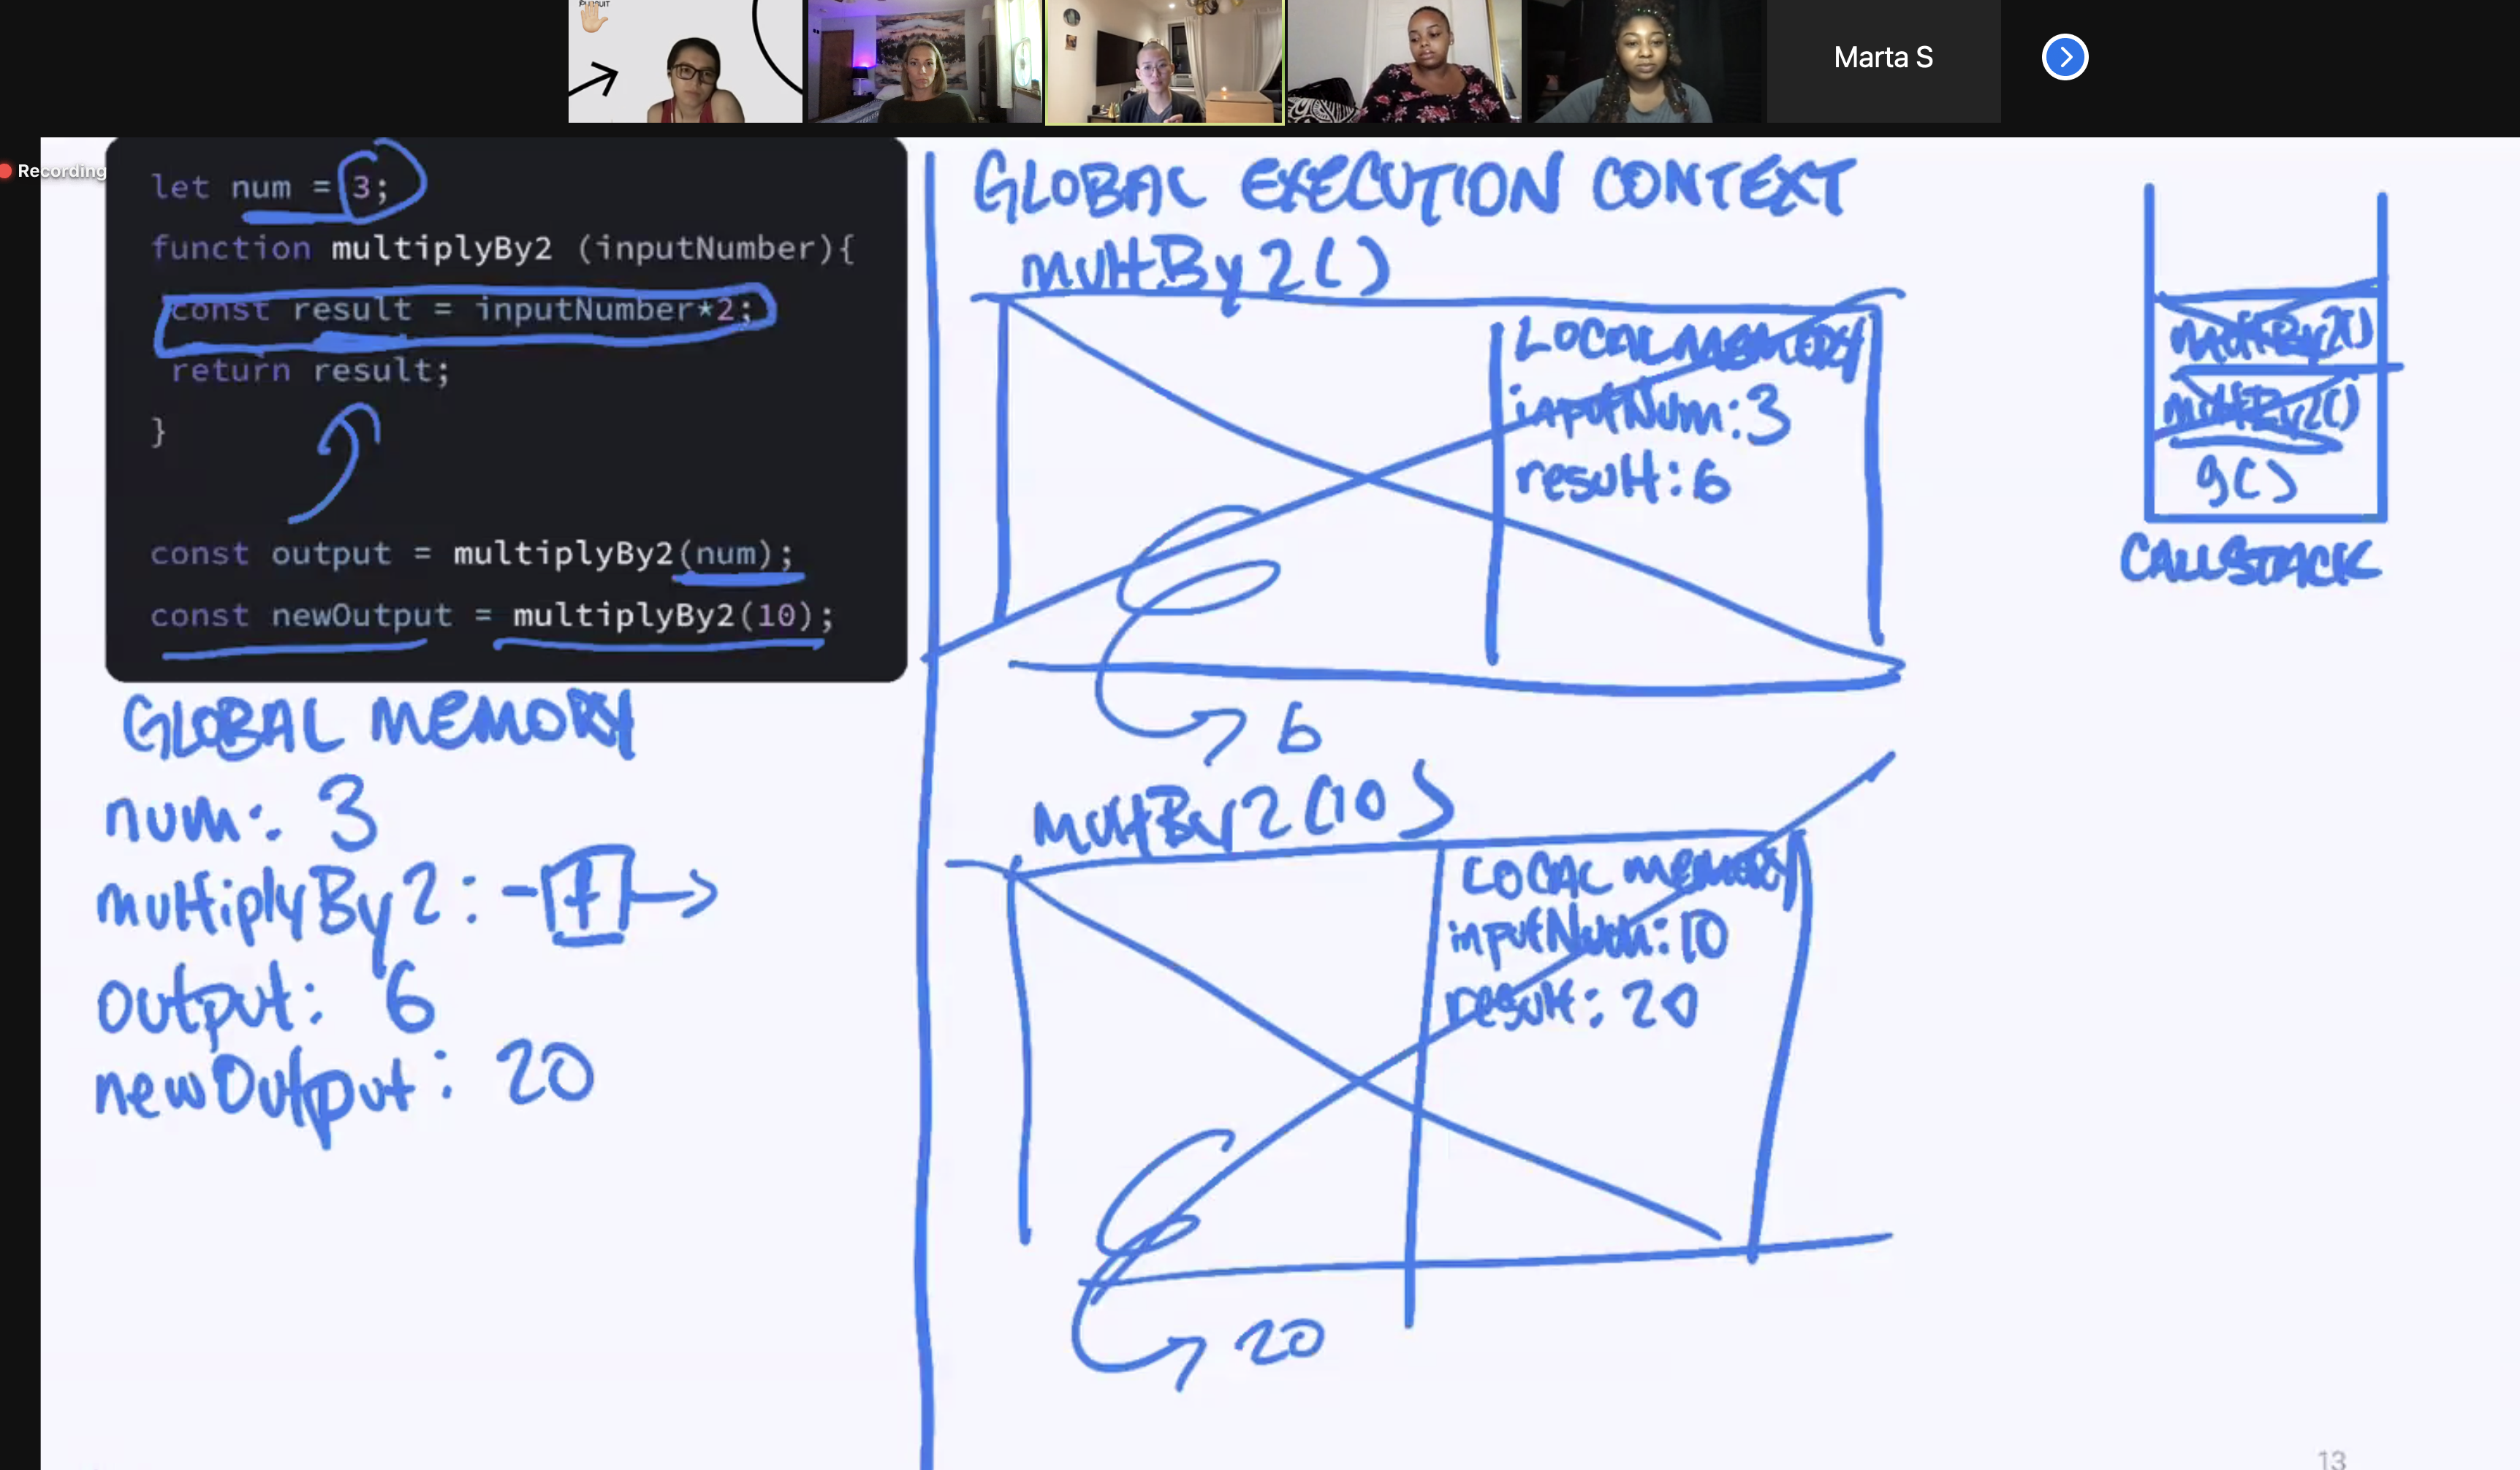 PURSUIT
Marta S
Recording
let num = 3;
function multiplyBy2 (inputNumber){
const result = inputNumber*2;
return result;
}
const output = multiplyBy2(num);
const newOutput = multiplyBy2(10);
GLOBAL MEMORY
num: 3
multiplyBy2: -f→
output: 6
newOutput: 20
GLOBAL EXECUTION CONTEXT
multBy2()
LOCAL MEMORY
inputNum: 3
result: 6
6
MultBy2(10)
LOCAL MEMORY
inputNum: 10
result: 20
20
multBy2()
multBy2()
g()
CALLSTACK
13